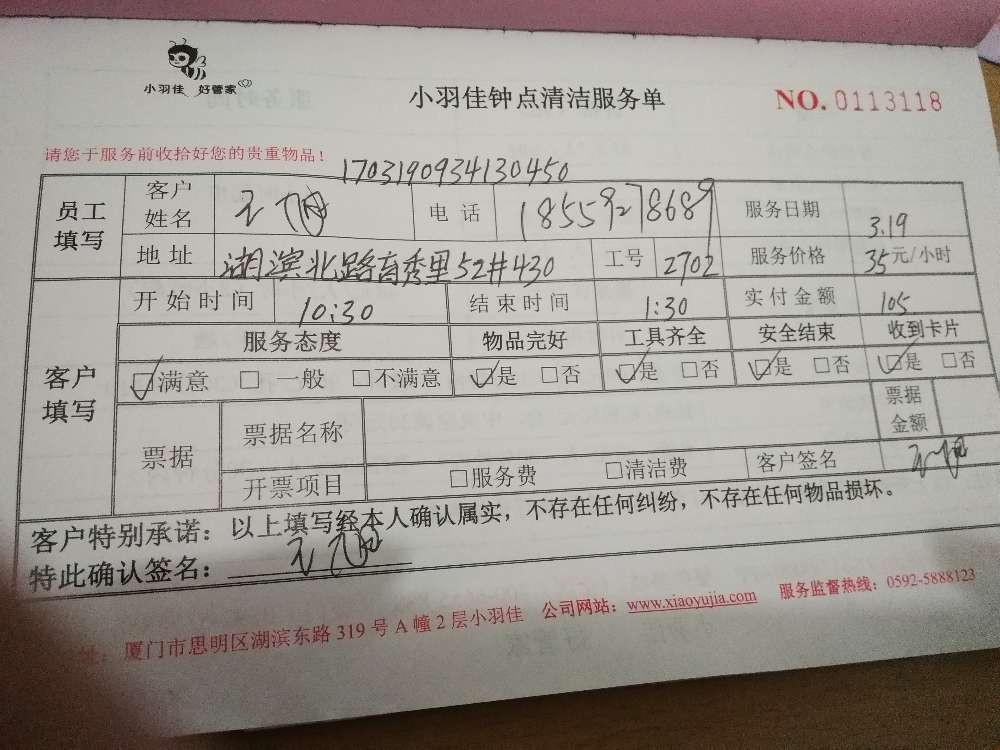 小羽佳 好管家
小羽佳钟点清洁服务单 NO. 0113118
请您于服务前收拾好您的贵重物品！
1703190934130450
员工填写 客户姓名 电话 18559278689 服务日期 3.19
地址 湖滨北路育秀里52#430 工号 2702 服务价格 35元/小时
客户填写 开始时间 10:30 结束时间 1:30 实付金额 105
服务态度 物品完好 工具齐全 安全结束 收到卡片
☑满意 □一般 □不满意 ☑是 □否 ☑是 □否 ☑是 □否 ☑是 □否
票据 票据名称 票据金额
开票项目 □服务费 □清洁费 客户签名
客户特别承诺：以上填写经本人确认属实，不存在任何纠纷，不存在任何物品损坏。
特此确认签名：
址：厦门市思明区湖滨东路319号A幢2层小羽佳 公司网站：www.xiaoyujia.com 服务监督热线：0592-5888123